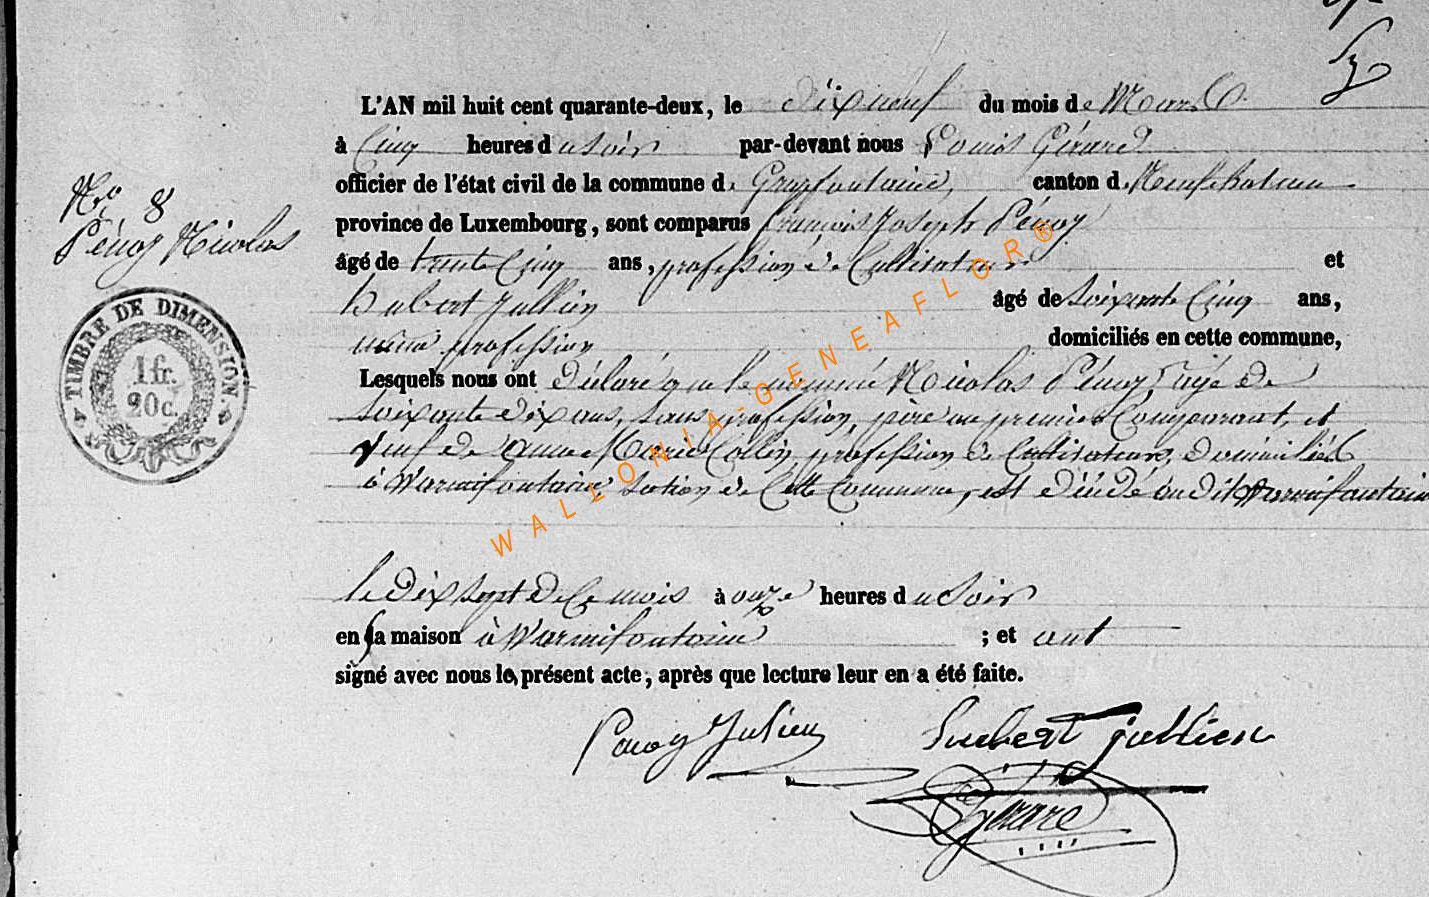 L'AN mil huit cent quarante-deux, le dix neuf du mois de Mars
à Cinq heures du Soir par-devant nous Louis Gérard
officier de l'état civil de la commune de Grapfontaine, canton de Neufchateau
Nro. 8
province de Luxembourg, sont comparus François Joseph Pénoy
Pénoy Nicolas
âgé de trente Cinq ans, profession de Cultivateur et
hubert Jullien âgé de Soixante Cinq ans,
même profession domiciliés en cette commune,
TIMBRE DE DIMENSION.
1 fr.
20 c.
Lesquels nous ont déclaré que le nommé Nicolas Pénoy, agé de
Soixante dix ans, Sans profession, père au premier Comparant, et
Veuf de Anne Marie Collin, profession de Cultivateurs, domiciliés
à Warmifontaine Section de Cette Commune, est décédé audit Warmifontaine
le dix Sept de Ce mois à onze heures du Soir
en sa maison à Warmifontaine ; et ont
signé avec nous le présent acte, après que lecture leur en a été faite.
Penoy Julien hubert Jullien
Gérard
WALLONIA-GENEAFLOR®